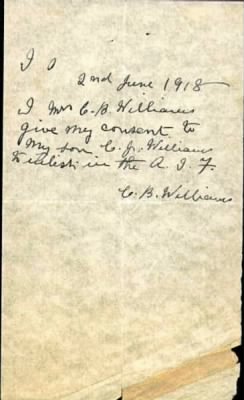 I O
2nd June 1918
I Mrs C. B. Williams
give my consent to
my son C. J. Williams
to enlist in the A. I. F.
C. B. Williams